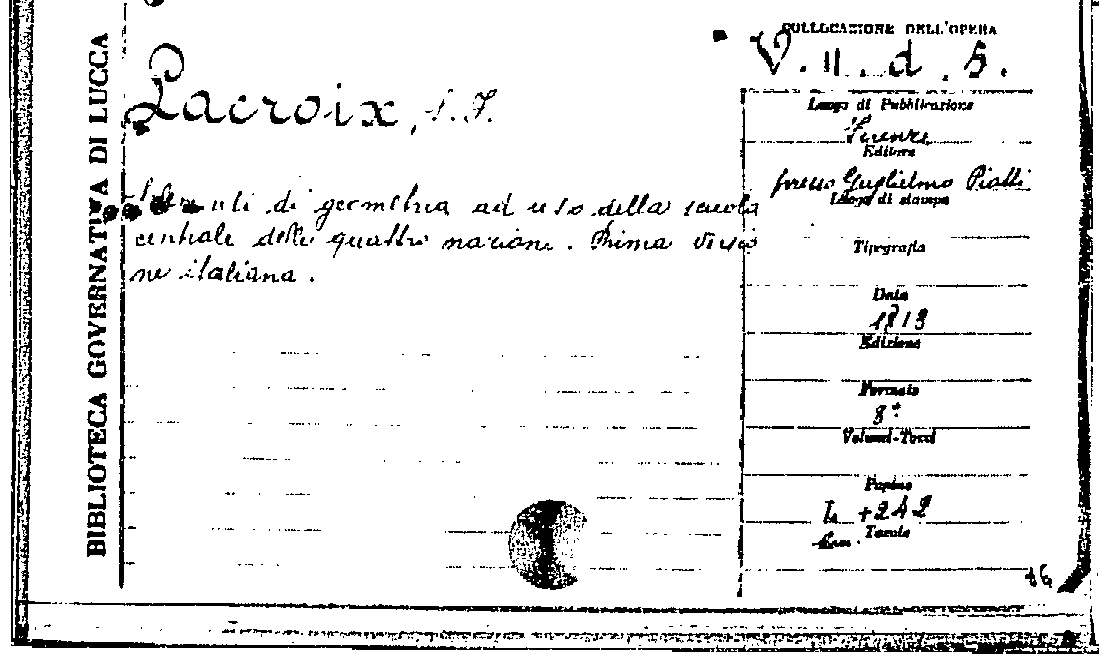 BIBLIOTECA GOVERNATIVA DI LUCCA
COLLOCAZIONE DELL'OPERA
V. II. d. 5.
Lacroix, S. F.
Luogo di Pubblicazione
Firenze
Editore
presso Guglielmo Piatti
Luogo di stampa
di geometria ad uso della scuola
centrale delle quattro nazioni. Prima versio
ne italiana.
Tipografia
Data
1813
Edizione
Formato
8°
Volumi-Tomi
Pagine
+ 242
Tavole
16